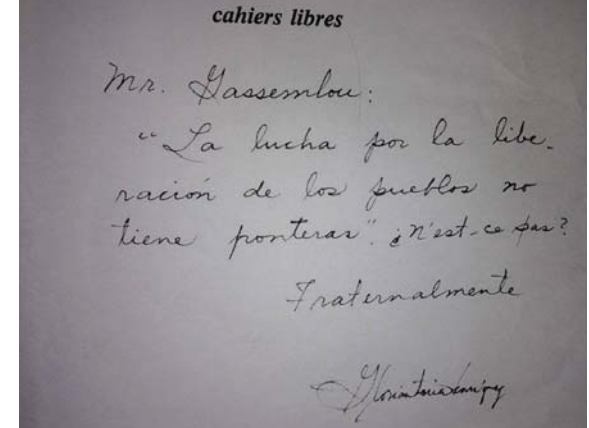 cahiers libres
Mr. Gassemlou:
"La lucha por la libe-
ración de los pueblos no
tiene fronteras". ¿N'est-ce pas?
Fraternalmente